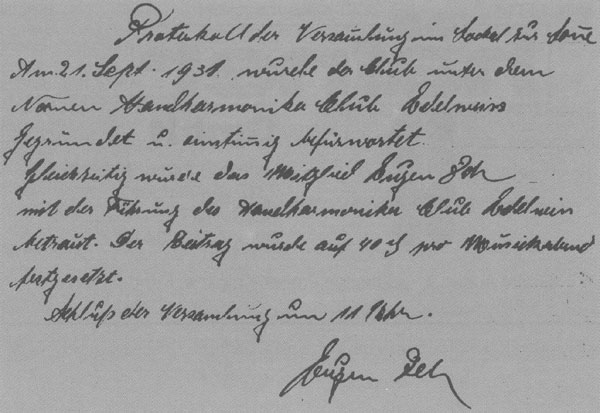 Protokoll der Versamlung im Lockal zur Sonne
Am 21. Sept. 1931. wurde der Club unter dem
Namen Handharmonika Club Edelweiss
gegründet u. einstimig befürwortet.
Gleichzeitig wurde das Mitglied Eugen
mit der Führung des Handharmonika Club Edelweiss
betraut. Der Beitrag wurde auf 40 pro Musickabend
festgesetzt.
Schluß der Versamlung um 11 Uhr.
Eugen